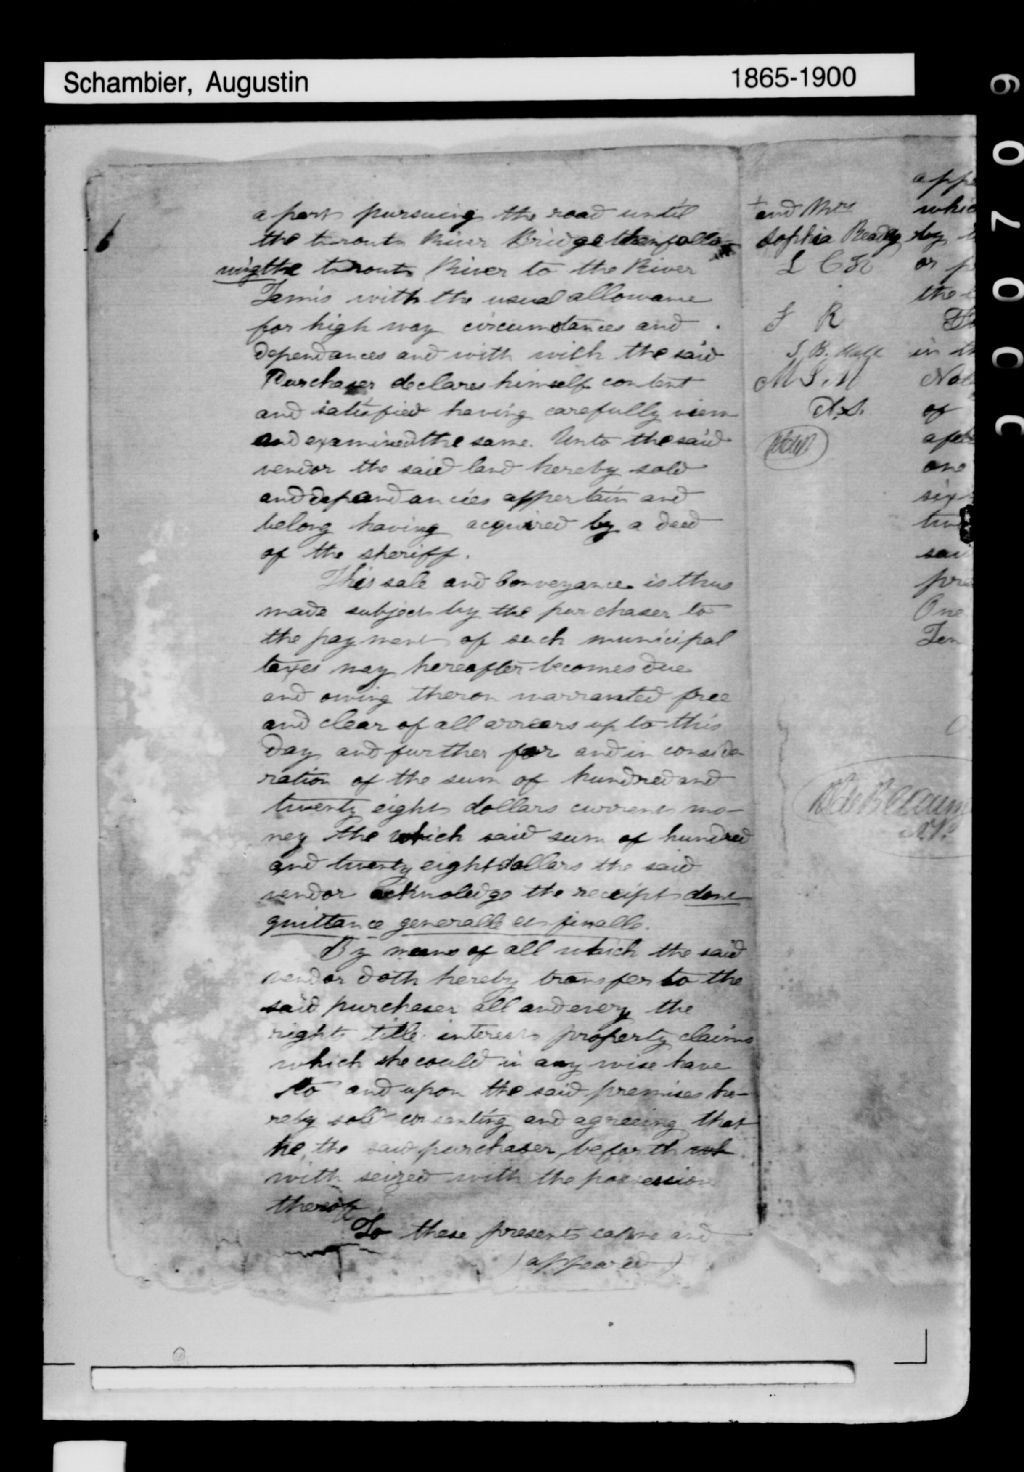 Schambier, Augustin 1865-1900
a part pursuing the road until
the trouts River Bridge then follo
wingthe trouts River to the River
Temis with the usual allowance
for high way circumstances and
dependances and with wich the said
Purchaser declares himself content
and satisfied having carefully view
and examined the same. Unto the said
vendor the said land hereby sold
and dependancies appertain and
belong having acquired by a deed
of the sheriff.
This sale and Conveyance is thus
made subject by the purchaser to
the payment of such municipal
taxes may hereafter becomes due
and owing theron warranted free
and clear of all arrears up to this
day and further for and in conside
ration of the sum of hundred and
twenty eight dollars current mo-
ney The which said sum of hundred
and twenty eight dollars the said
vendor acknoledge the receipt dont
quittance generalle et finalle.
By means of all which the said
vendor doth hereby transfer to the
said purchaser all and every the
right title interest property claims
which she could in any wise have
to and upon the said premises he-
reby sold consenting and agreeing that
he, the said purchaser, be forth
with seized with the possession
therof
To these presents came and
(appeared)
+ and Mrs
Sophia Ready
F R
M S. N
appe
which
by
or p
the
in th
of
one
six
said
pr
One
Ten
6 0 7 0 0 0 0